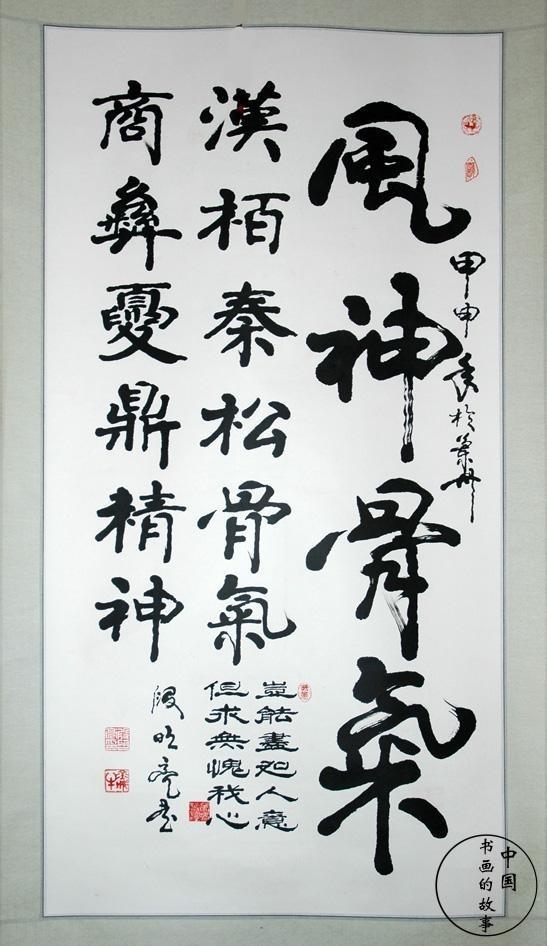 風神骨氣
甲申年於蘭州
漢栢秦松骨氣
商彝夏鼎精神
豈能盡如人意
但求無愧我心
段明亮書
中国
书画的故事